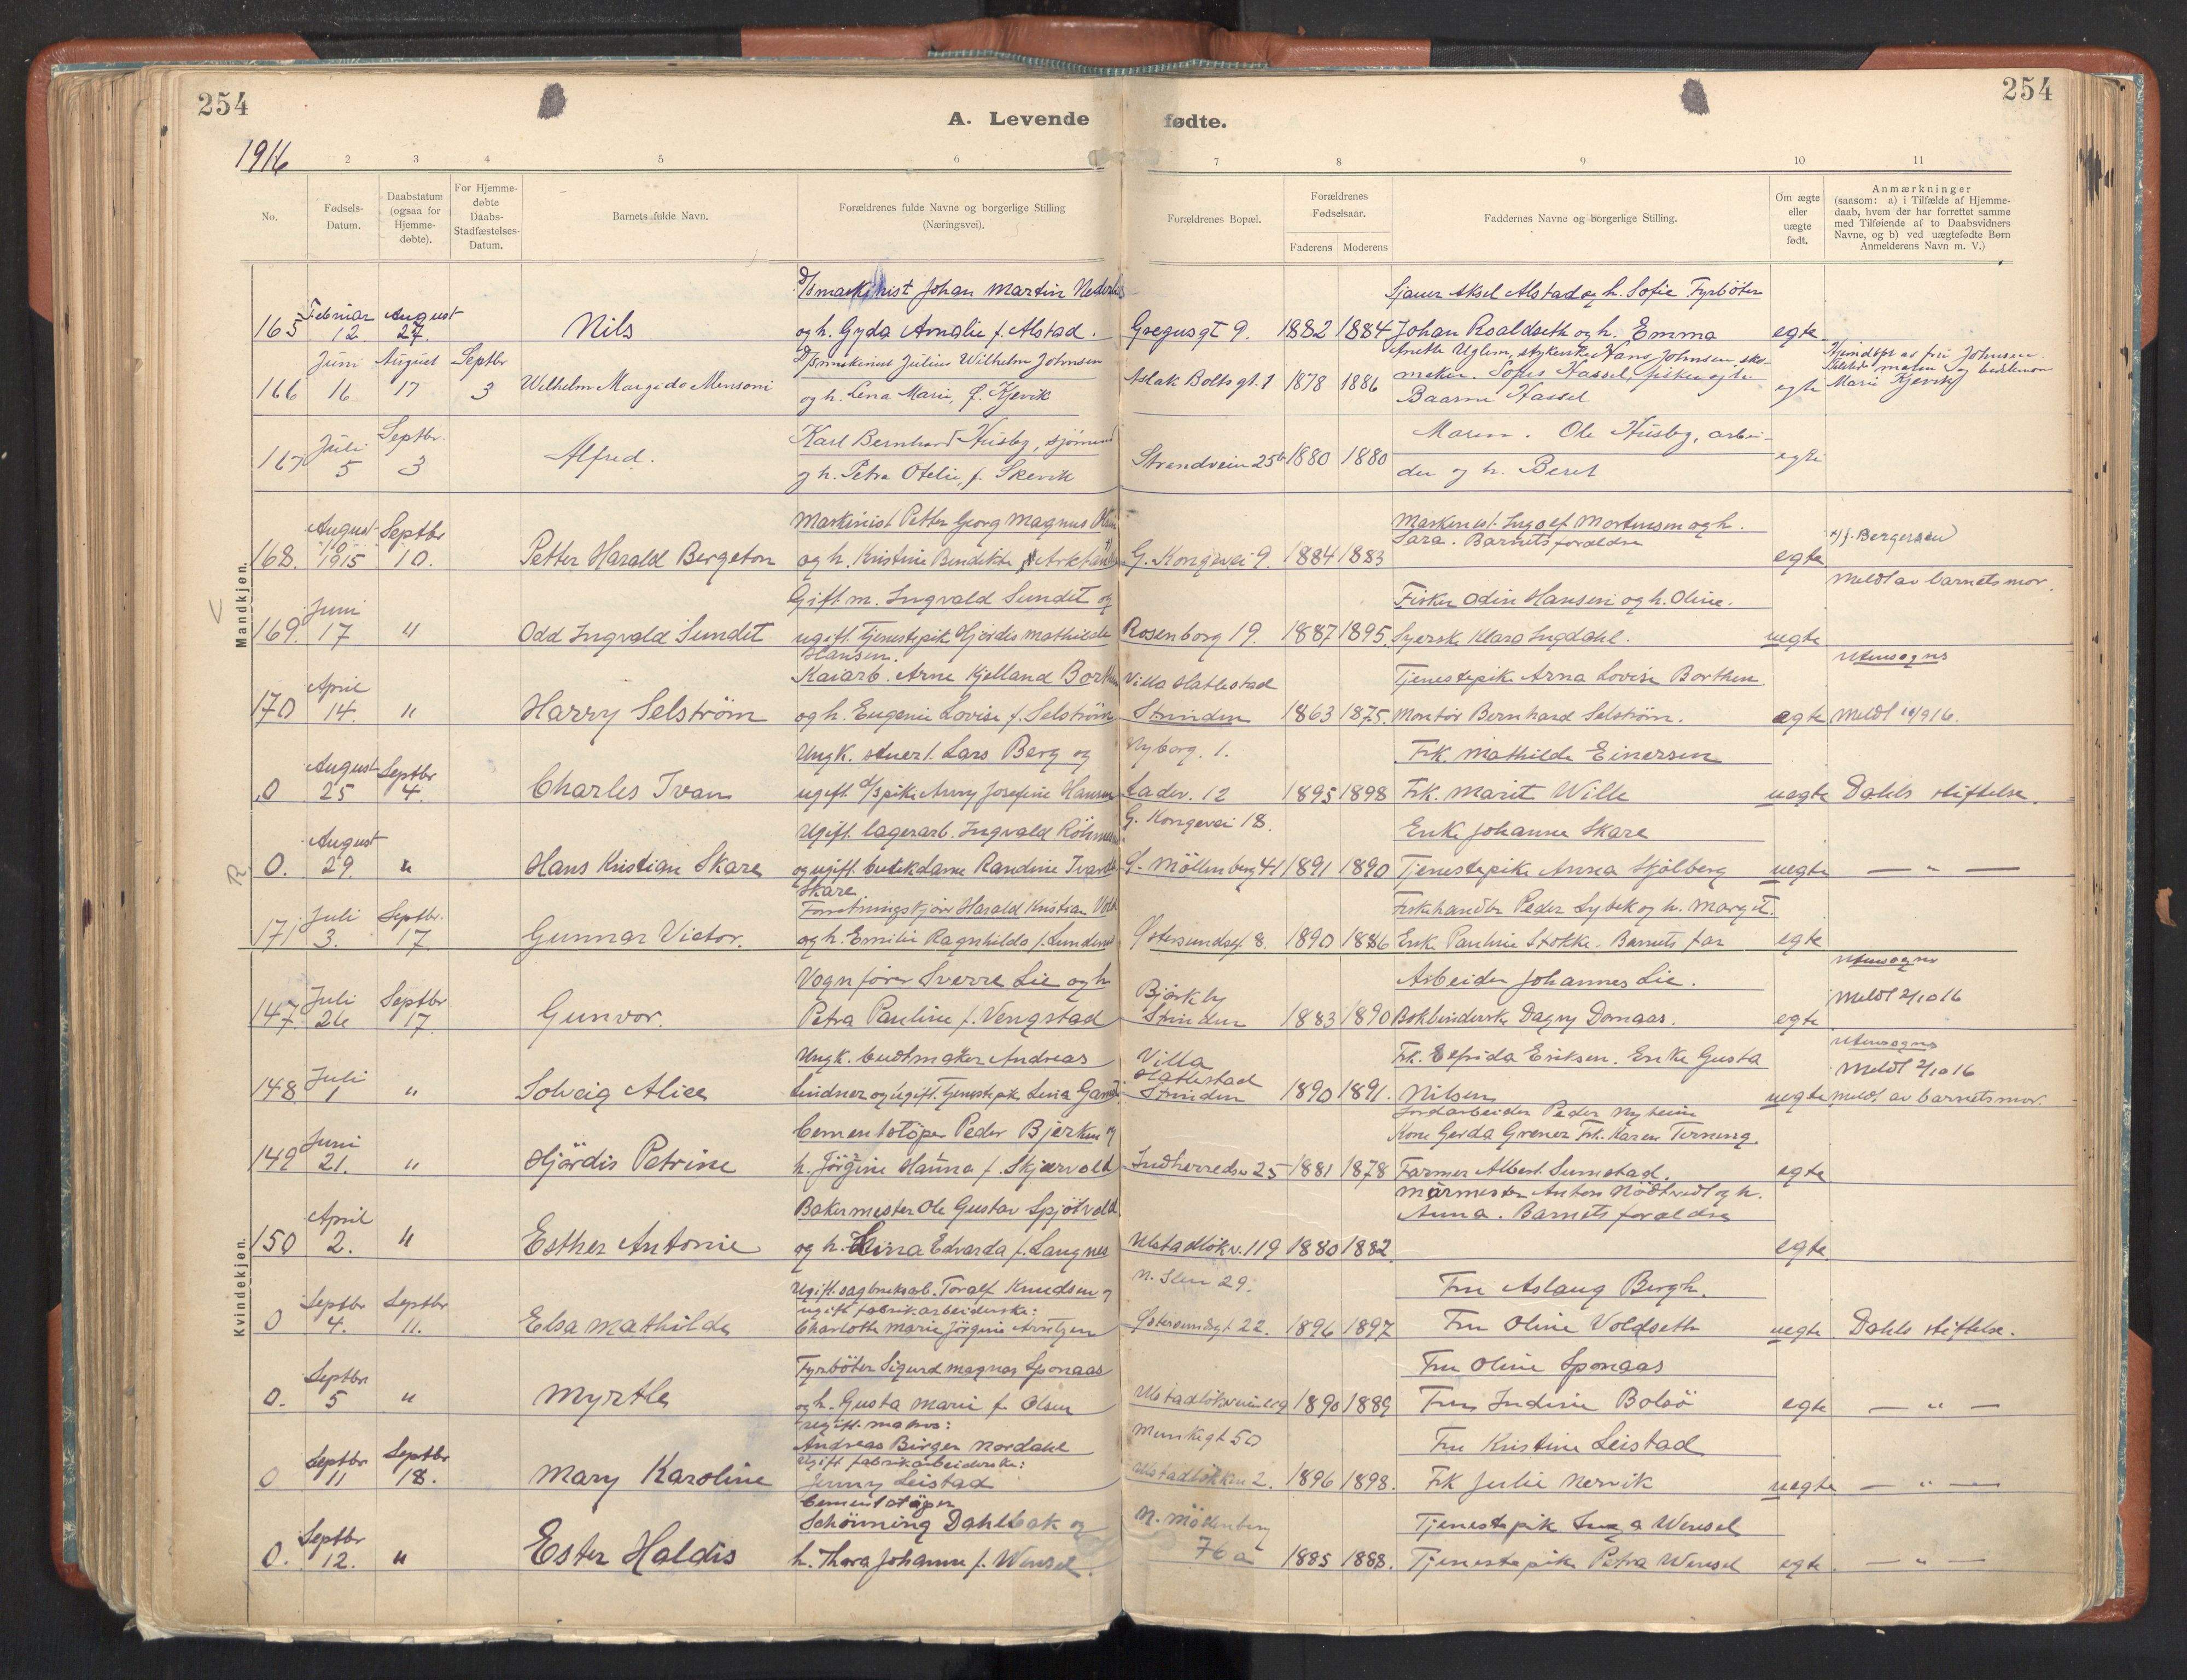 254
254
A. Levende fødte.
1916
2 3 4 5 6 7 8 9 10 11
No.
Fødsels-Datum.
Daabsdatum (ogsaa for Hjemme-døbte).
For Hjemme-døbte Daabs-Stadfæstelses-Datum.
Barnets fulde Navn.
Forældrenes fulde Navne og borgerlige Stilling (Næringsvei).
Forældrenes Bopæl.
Forældrenes Fødselsaar.
Faderens Moderens
Faddernes Navne og borgerlige Stilling.
Om ægte eller uægte født.
Anmærkninger (saasom: a) i Tilfælde af Hjemme-daab, hvem der har forrettet samme med Tilføiende af to Daabsvidners Navne, og b) ved uægtefødte Børn Anmelderens Navn m. V.)
Mandkjøn.
D/s maskinist Johan Martin Sjauer Aksel Alstad og h. Sofie Fyrböter
165 Februar 12. August 27. Nils og h. Gyda Amalie f. Alstad. Gregusgt 9. 1882 1884 Johan Roaldseth og h. Emma egte
D/s maskinist Julius Wilhelm Johnsen Anette Uglem, strykerske Hans Johnsen, sko-
166 Juni 16 August 17 Septbr 3 Wilhelm Margido Mensoni og h. Lena Marie, f. Kjevik Aslak Bolts gt. 1 1878 1886 maker. Hassel, fisker og h. Baarne Hassel egte Hjemdöpt av fru Johnsen. Marie Kjevik
Karl Bernhard Husby, sjömand Maren. Ole Husby, arbei-
167 Juli 5 Septbr. 3 Alfred. og h. Petra Otelie, f. Skevik Strandveien 25b 1880 1880 der og h. Beret egte
Maskinist Petter Georg Magnus Maskinist. Ingolf Mortensen og h.
168. August 10 1915 Septbr 10. Petter Harald Bergeton og h. Kristine Bendikte G. Kongevei 9. 1884 1883 Sara. Barnets foraldre egte f. Bergersen
Gift m. Ingvald Sundet og Fisker Odin Hansen og h. Oline. Meldt av barnets mor.
169. Juni 17 " Odd Ingvald Sundet ugift. Tjenestepik Hjördis Mathilde Hansen. Rosenborg 19. 1887 1895. Syerske Klara Ingdahl. uegte
Kaiarb. Arne Kjelland Borthen Villa Hatlestad Tjenestepik Arna Lovise Borthen Utensogns
170 April 14. " Harry Selström og h. Eugenie Lovise f. Selström Strinden 1863 1875. Montör Bernhard Selström. egte Meldt 10/9 16.
Ungk. stuert. Lars Berg og Nyborg. 1. Frk. Mathilde Einersen
0 August 25 Septbr 4. Charles Ivan ugift. d/s pike Anny Josefine Hansen Ladev. 12 1895 1898 Frk. Marit Wille uegte Dahls stiftelse.
Ugift. lagerarb. Ingvald G. Kongevei 18. Enke Johanne Skare
0. August 29. " Hans Kristian Skare og ugift. butikdame Randine Skare G. Möllenberg 41 1891 1890 Tjenestepike Anna Skjölberg uegte — " —
Forretningskjörer Harald Kristian Fiskehandler Peder Lybek og h. Margit.
171 Juli 3. Septbr. 17. Gunnar Victor. og h. Emilie Ragnhilda f. Östersundsgt. 8. 1890 1886 Enke Pauline Stokke. Barnets far egte
Kvindekjøn.
Vognförer Sverre Lie og h Björkby Arbeider Johannes Lie. Utensogns
147. Juli 26 Septbr 17. Gunvor. Petra Pauline f. Vengstad Strinden 1883 1890 Bokbinderske Dagny Domaas. egte Meldt 2/10 16
Ungk. budtmaker Andreas Villa Hatlestad Frk. Elfrida Eriksen. Enke Gusta Utensogns Meldt 2/10 16
148 Juli 1 " Solveig Alice Lindner og ugift. Tjenestepik Strinden 1890 1891. Nilsen uegte Meldt av barnets mor.
Cementstöper Peder Bjerken og Jordarbeider Peder Nyheim Kone Gerda Grener Frk. Karen Terning.
149 Juni 21. " Hjördis Petrine h. Jörgine Hanna f. Skjærvold Indherredsv 25 1881 1878 Farmer Albert Sumstad. egte
Bakermester Ole Gustav Spjötvold Murmester Anton Nödtvedt og h. Anna. Barnets foraldre
150 April 2. " Esther Antonie og h. Lina Edvarda f. Langnes Ulstadlökv. 119 1880 1882 egte
Ugift. sagbruksarb. Toralf Knudsen og ugift fabrikarbeiderske: N. Ilen 29. Fru Aslaug Bergh.
0 Septbr 4. Septbr 11. Elsa Mathilde Charlotte Marie Jörgine Arntzen Östersundsgt 22. 1896 1897 Fru Oline Voldseth uegte Dahls stiftelse.
Fyrböter Sigurd Magnar Sponaas Fru Oline Sponaas
0. Septbr 5 " Myrtle og h. Gusta Marie f. Olsen Ulstadlökveien 1890 1889 Fru Indine Bolsö egte — " —
Ugift. matros: Andreas Birger Nordahl Munkegt 50 Fru Kristine Leistad
0 Septbr 11 Septbr 18. Mary Karoline Ugift fabrikarbeiderske: Jenny Leistad Ulstadlökken 2. 1896 1898. Frk Julie Nervik uegte — " —
Cementstöper Schönning Dahlbak og N. Möllenberg Tjenestepik Inga Wensel
0. Septbr 12. " Ester Haldis h. Thora Johanne f. Wensel. 76 a 1885 1888. Tjenestepik Petra Wensel egte — " —